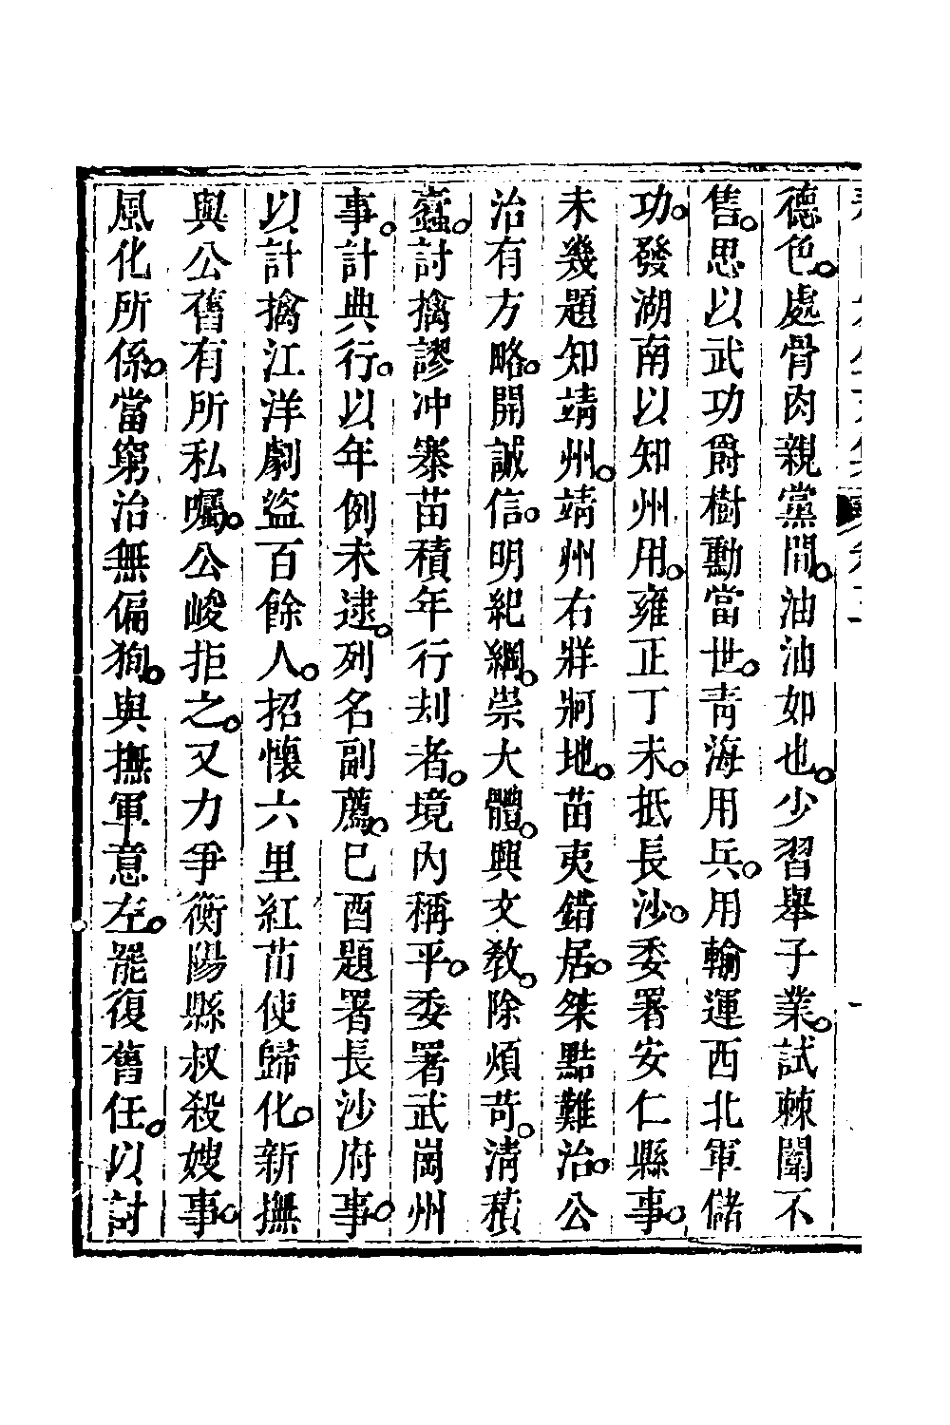 德色。處骨肉親黨間。油油如也。少習舉子業。試棘闈不
售。思以武功爵樹勳當世。青海用兵。用輸運西北軍儲
功。發湖南以知州用。雍正丁未。抵長沙。委署安仁縣事。
未幾題知靖州。靖州右牂牁地。苗夷錯居。桀黠難治。公
治有方略。開誠信。明紀綱。崇大體。興文教。除煩苛。清積
蠹。討擒謬冲寨苗積年行刦者。境內稱平。委署武崗州
事。計典行。以年例未逮。列名副薦。己酉題署長沙府事。
以計擒江洋劇盜百餘人。招懷六里紅苗使歸化。新撫
與公舊有所私囑。公峻拒之。又力爭衡陽縣叔殺嫂事。
風化所係。當窮治無偏狥。與撫軍意左。罷復舊任。以討